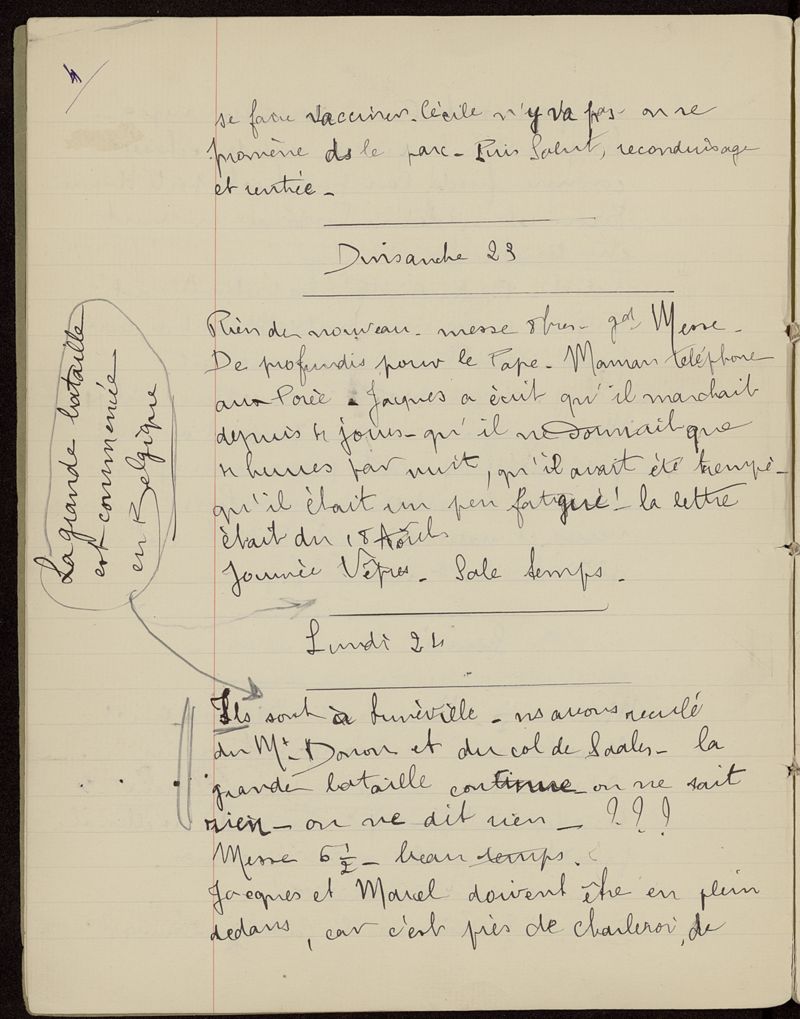 4
se faire vacciner. Cécile n'y va pas - on se
promène ds le parc - Puis Salut, reconduisage
et rentrée -
Dimanche 23
Rien de nouveau - messe 8 hres - gd Messe -
De profundis pour le Pape - Maman téléphone
aux Porée - Jacques a écrit qu'il marchait
depuis 4 jours - qu'il ne dormait que
4 heures par nuit, qu'il avait été trempé -
qu'il était un peu fatigué ! - la lettre
était du 18 Août
Journée Vêpres - Sale temps -
La grande bataille
est commencée
en Belgique
Lundi 24
Ils sont à Lunéville - ns avons reculé
du Mt Donon et du col de Saales - la
grande bataille continue - on ne sait
rien - on ne dit rien - ? ? ?
Messe 6 1/2 - beau temps.
Jacques et Marcel doivent être en plein
dedans, car c'est près de Charleroi, de